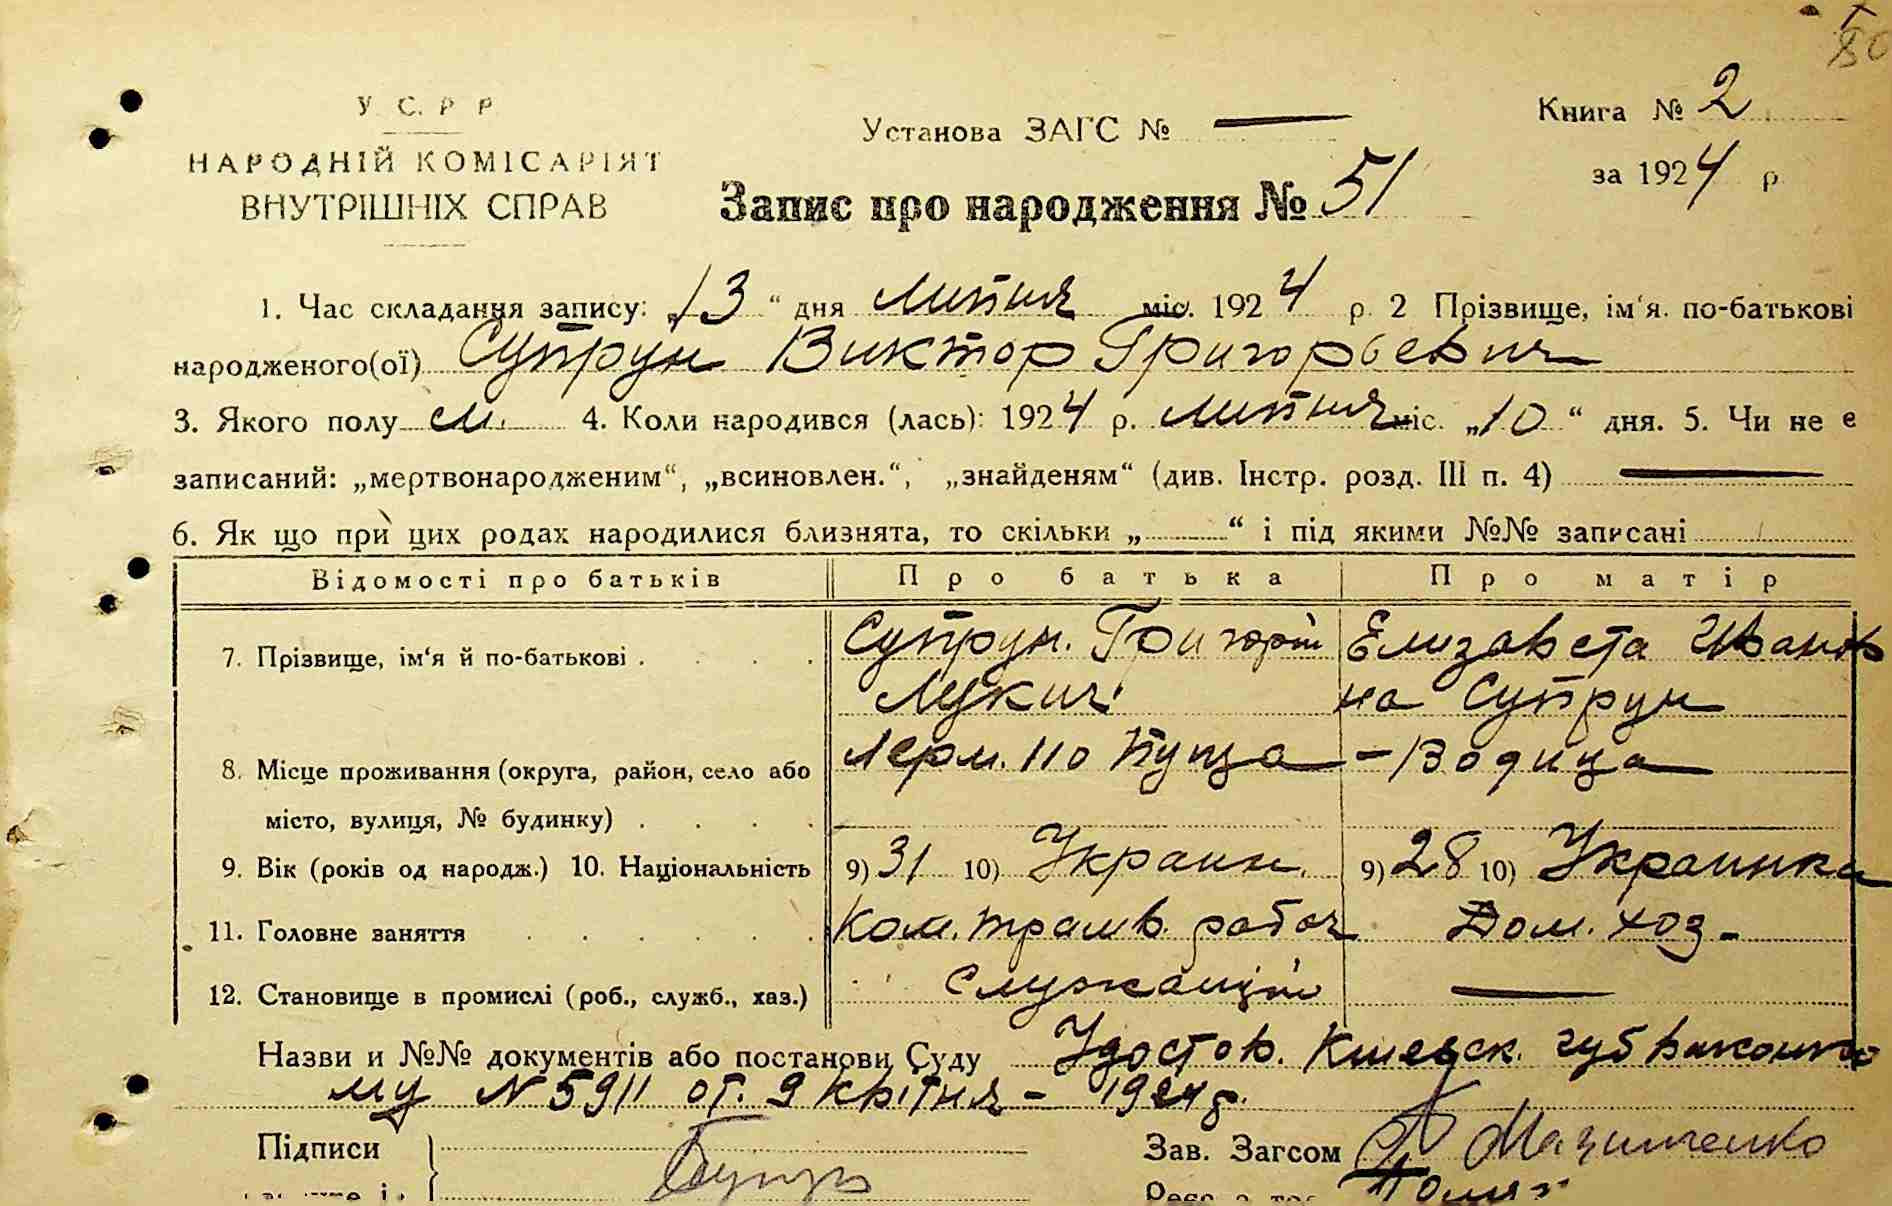 У. С. Р. Р.
НАРОДНІЙ КОМІСАРІЯТ
ВНУТРІШНІХ СПРАВ
Установа ЗАГС № —
Книга № 2
за 1924 р.
Запис про народження № 51
1. Час складання запису: „13“ дня Липня міс. 1924 р. 2 Прізвище, ім'я. по-батькові
народженого(ої) Супрун Виктор Григорьевич
3. Якого полу м. 4. Коли народився (лась): 1924 р. Липня міс. „10“ дня. 5. Чи не є
записаний: „мертвонародженим“, „всиновлен.“, „знайденям“ (див. Інстр. розд. III п. 4) —
6. Як що при цих родах народилися близнята, то скільки „ “ і під якими №№ записані
Відомості про батьків Про батька Про матір
7. Прізвище, ім'я й по-батькові Супрун. Григорій Елизавета Иванов
Лукич на Супрун
8. Місце проживання (округа, район, село або Пуща - Водица
місто, вулиця, № будинку)
9. Вік (років од народж.) 10. Національність 9) 31 10) Украин. 9) 28 10) Украинка
11. Головне заняття Ком. трамв. рабоч Дом. хоз.
12. Становище в промислі (роб., служб., хаз.) Служащій —
Назви и №№ документів або постанови Суду Удостов. Киевск.
му N 5911 от. 9 квітня - 1924 р.
Підписи
Зав. Загсом